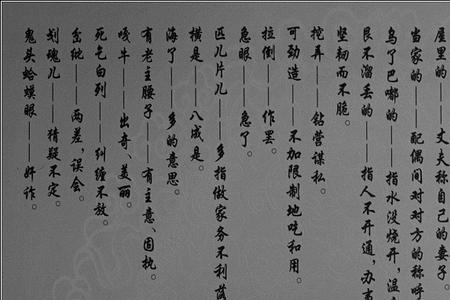 屋里的———丈夫称自己的妻子。
当家的———配偶间对对方的称呼
乌了巴嘟的———指水没烧开，温
艮不溜丢的———指人不开通，办事
坚韧而不脆。
挖弄———钻营谋私。
可劲造———不加限制地吃和用。
拉倒———作罢。
急眼———急了。
匹儿片儿———多指做家务不利落
横是———八成是。
海了———多的意思。
有老主腰子———有主意、固执。
牛———出奇、美丽。
死乞白列———纠缠不放。
岔纰———两差，误会。
划魂儿———猜疑不定。
鬼头蛤蟆眼———奸诈。